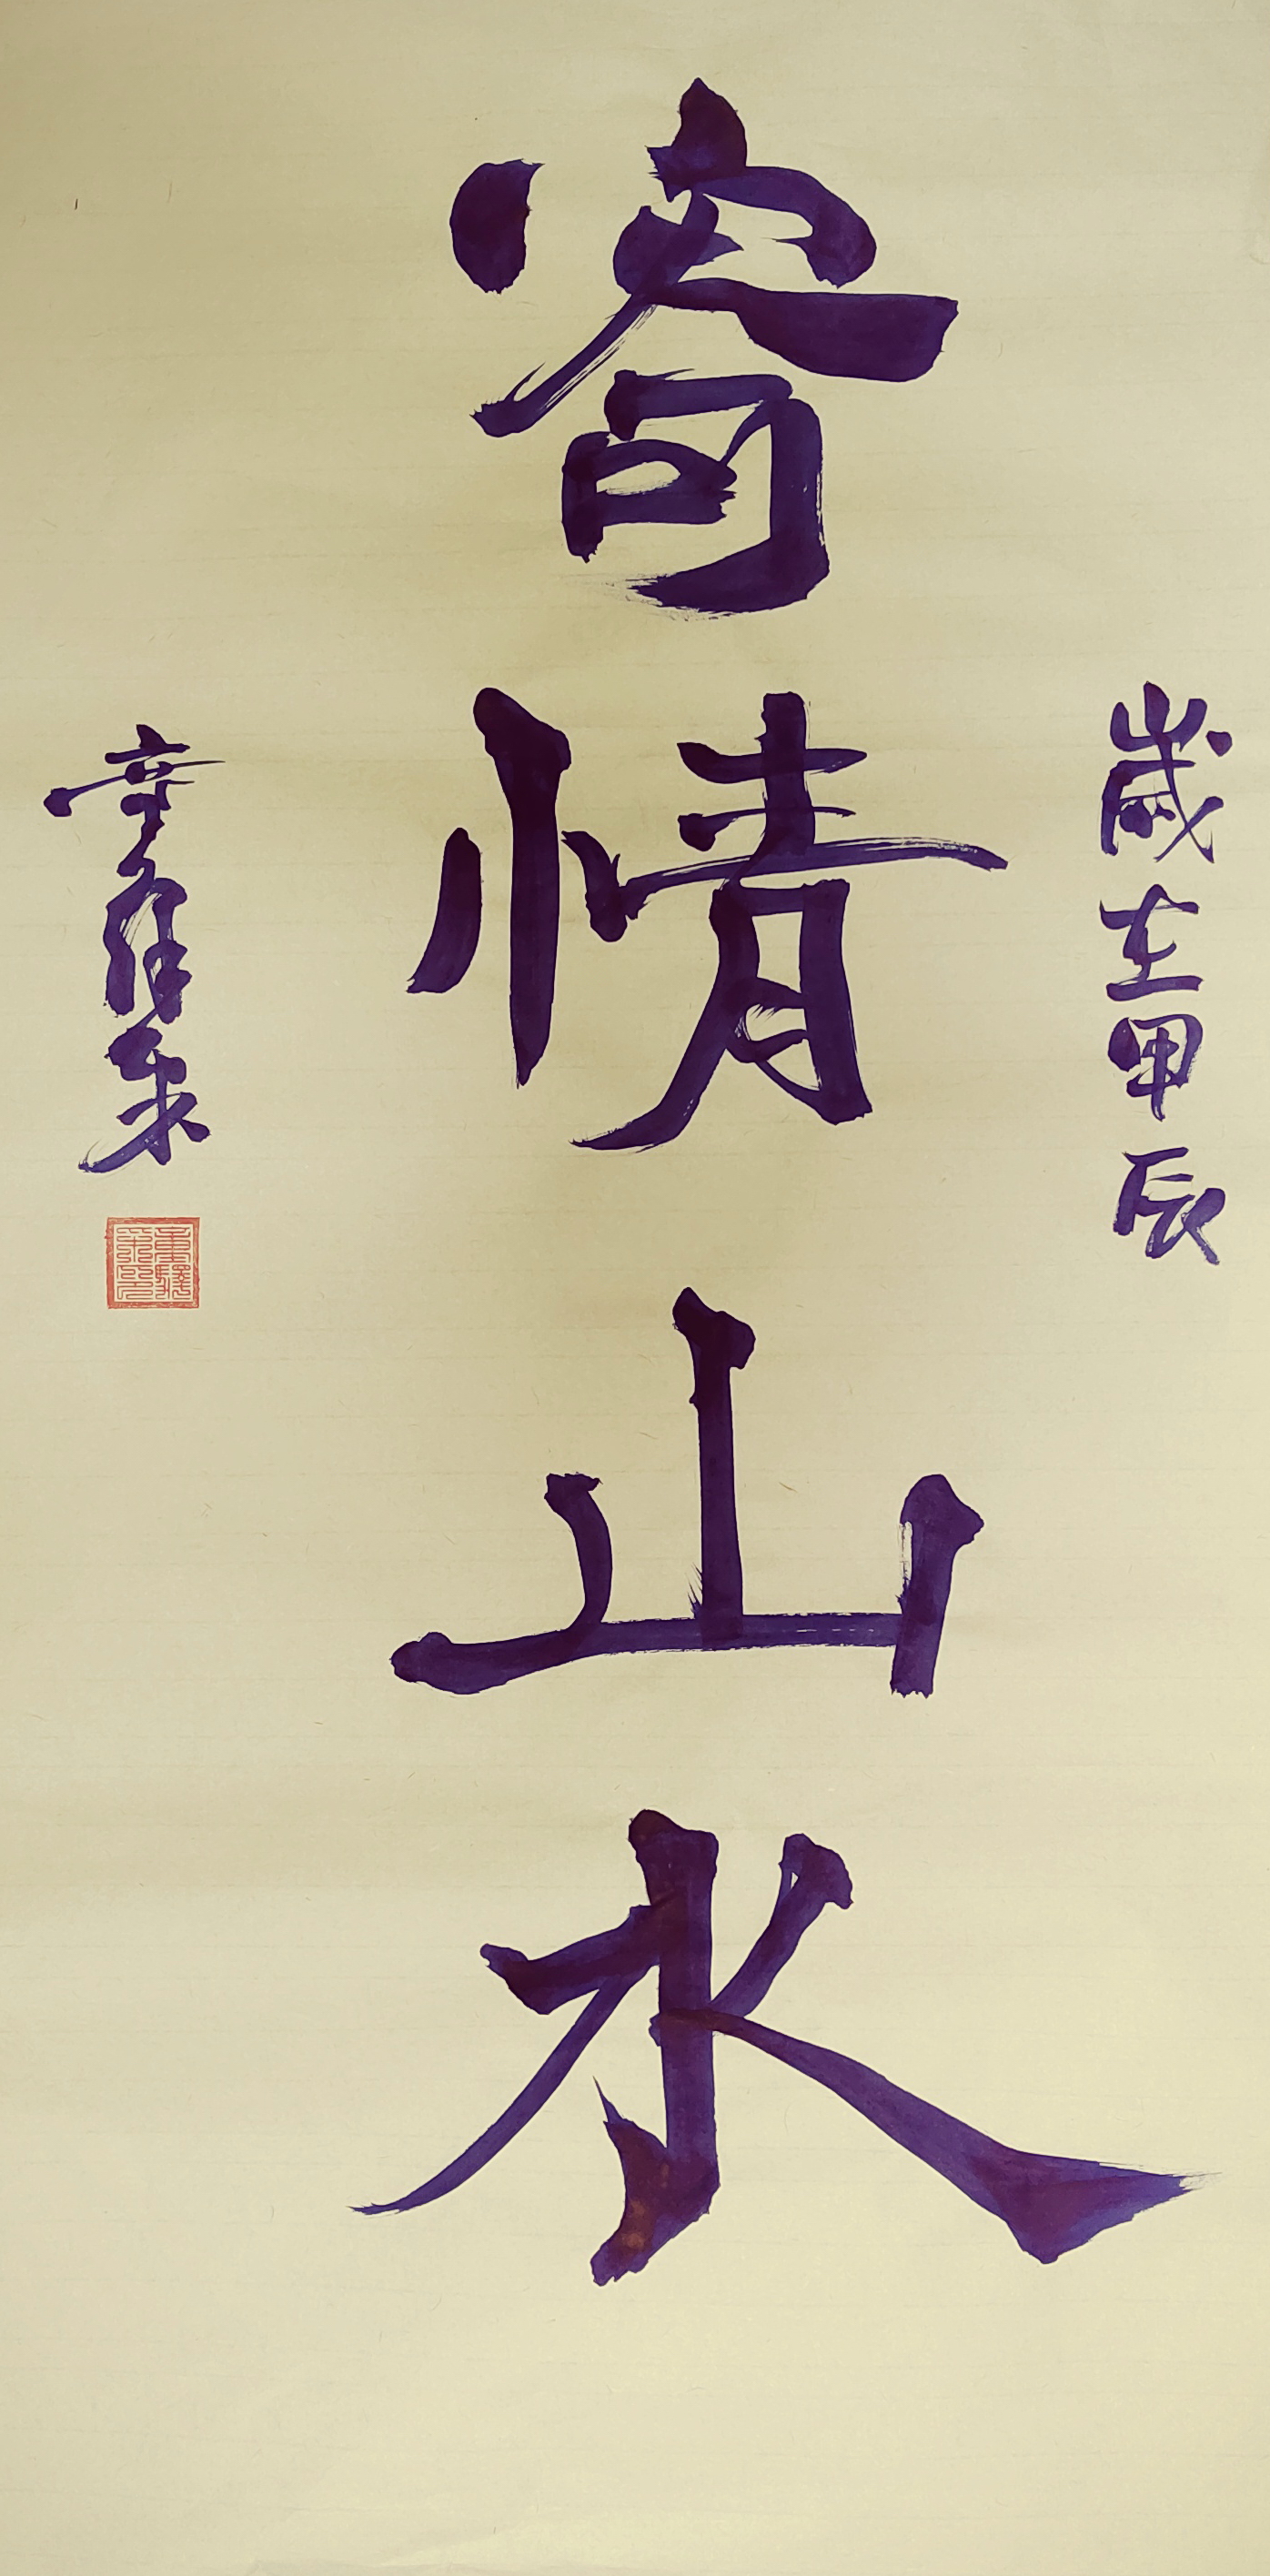 歲在甲辰
寄情山水